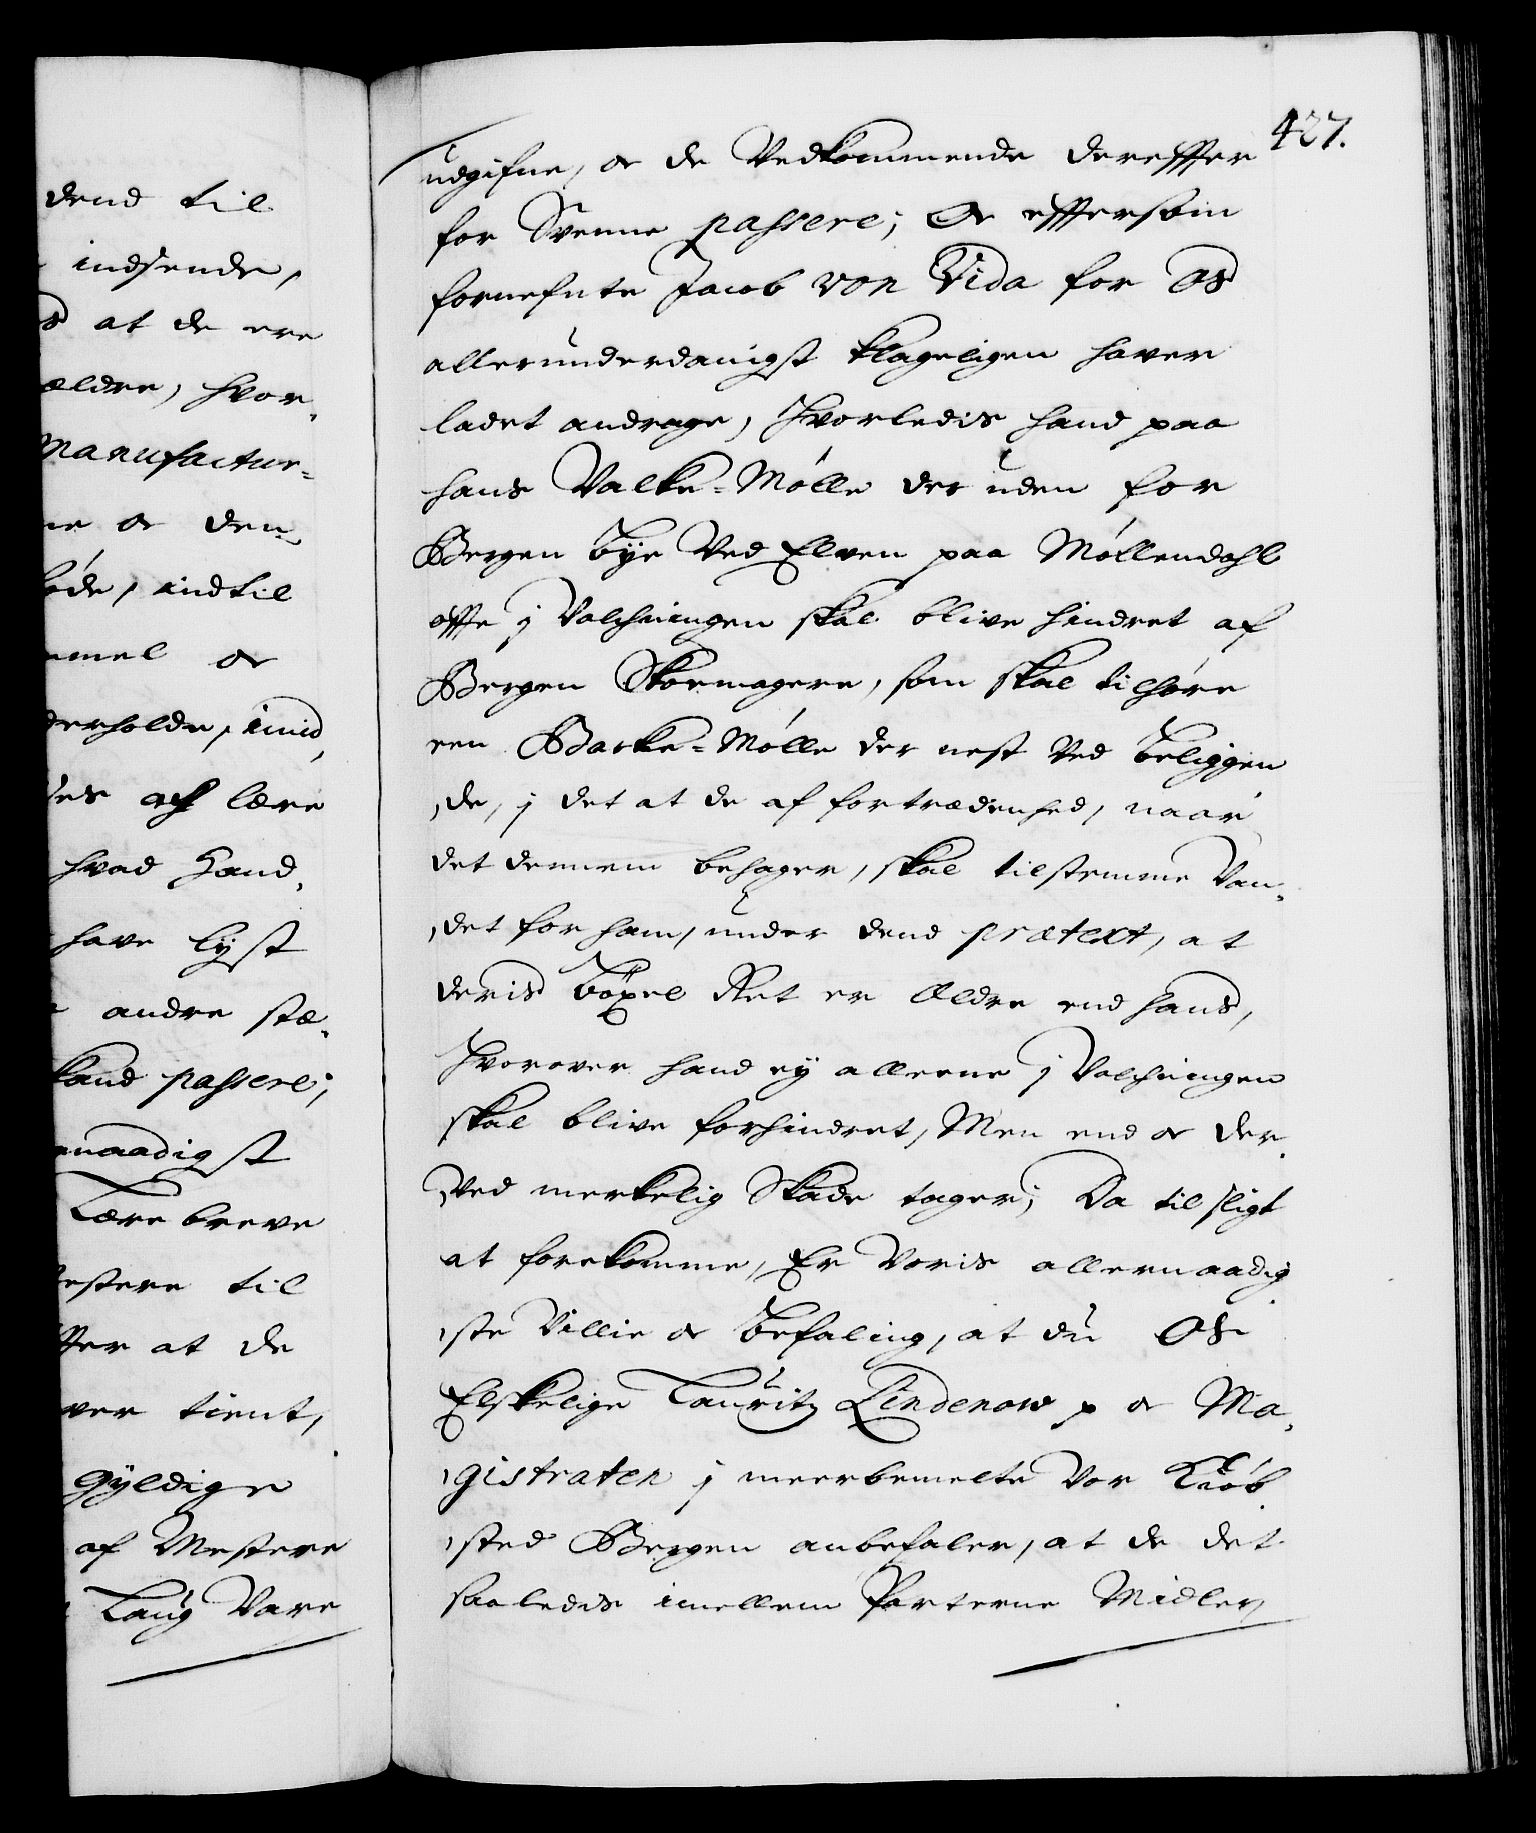 dend til
indsende,
at de ere
ældre, hvor-
Manufactur-
ne oc den-
øde, indtil
mmel oc
derholde, imid,
des at lære
hvad Hand,
have lyst
andre stæ-
kand passere;
naadigst
Lære breve
estere til
ter at de
ver tient,
gyldige
af Mestere
Laug Vare
427.
udgifne, oc de Vedkommende dereffter
for Svenne passere; Oc efftersom
fornefnte Jacob von Vida for Os
allerunderdanigst klageligen haver
ladet andrage, hvorledis hand paa
hans Valke-Mølle der uden for
Bergen Bye Ved Elven paa Møllendahl
offte j Valchningen skal blive hindret af
Bergen Skoemagere, som skal tilhøre
een Barke-Mølle der nest Ved beliggen
,de, j det at de af fortrædenhed, naar
det dennem behager, skal tilstemme Van-
,det for ham, under dend prætext, at
deris bøxel Ret er Ældre end hans,
hvorover hand ey alleene j Valchningen
skal blive forhindret, Men end oc der-
,Ved merkelig Skade tager; Da til sligt
at forekomme, Er Voris allernaadig
,ste Villie oc Befaling, at du Os
Elskelige Lauritz Lindenow p oc Ma-
,gistraten j meerbemelte Vor Kiøb
,sted Bergen anbefaler, at de det
saaledis imellem Parterne Midler,